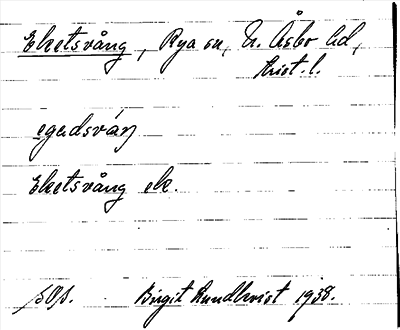 Eketsvång, Rya sn, N. Åsbo hd,
Krist. l.
egadsváŋ
Eketsvång ek.
SOA. Birgit Rundkvist 1938.